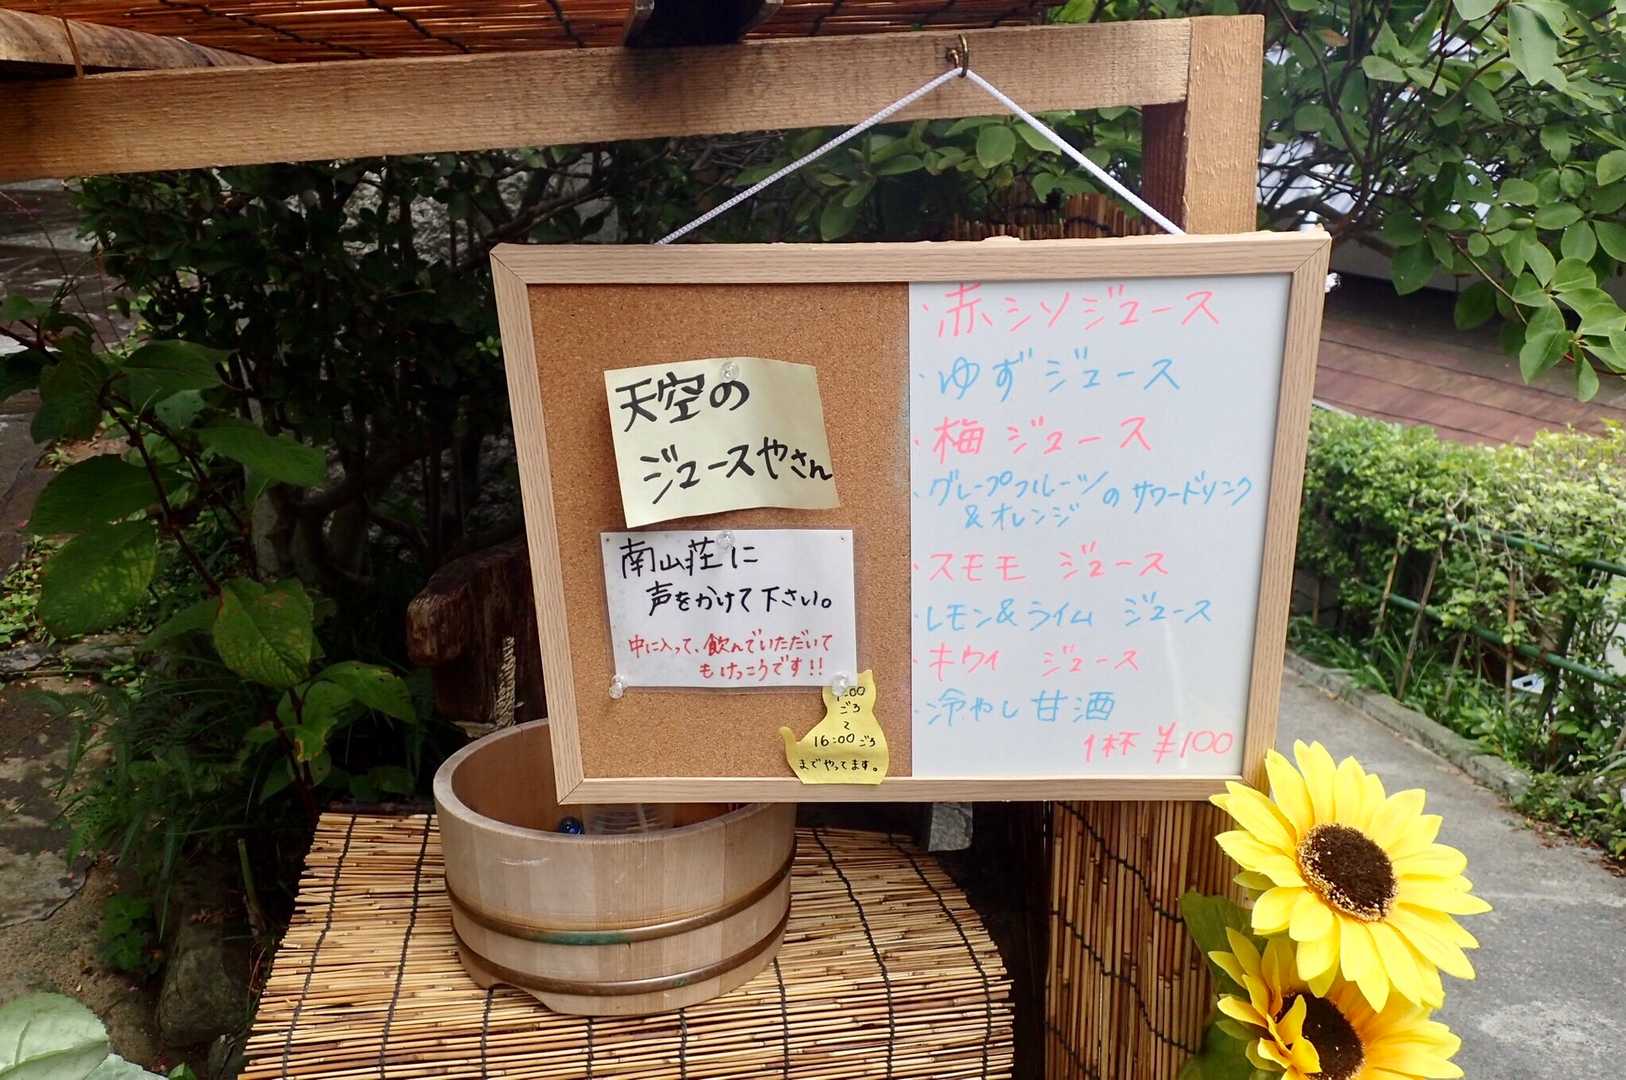 天空の
ジュースやさん
南山荘に
声をかけて下さい。
中に入って、飲んでいただいて
もけっこうです!!
:00
ごろ
~
16:00ごろ
までやってます。
・赤シソジュース
・ゆずジュース
・梅ジュース
・グレープフルーツのサワードリンク
&オレンジ
・スモモ ジュース
・レモン&ライム ジュース
・キウイ ジュース
・冷やし甘酒
1杯 ¥100